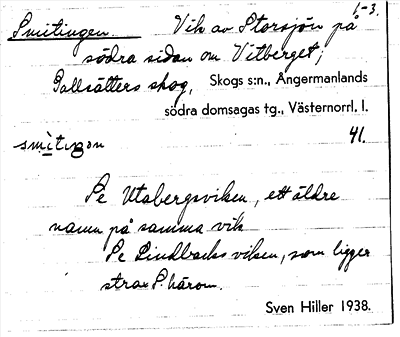 1-3.
Smitingen. Vik av Storsjön på
södra sidan om Vitberget;
Gallsätters skog, Skogs s:n., Ångermanlands
södra domsagas tg., Västernorrl. l.
smitiŋən 41.
Se Utabergsviken, ett äldre
namn på samma vik
Se Lindbacksviken, som ligger
strax S. härom.
Sven Hiller 1938.